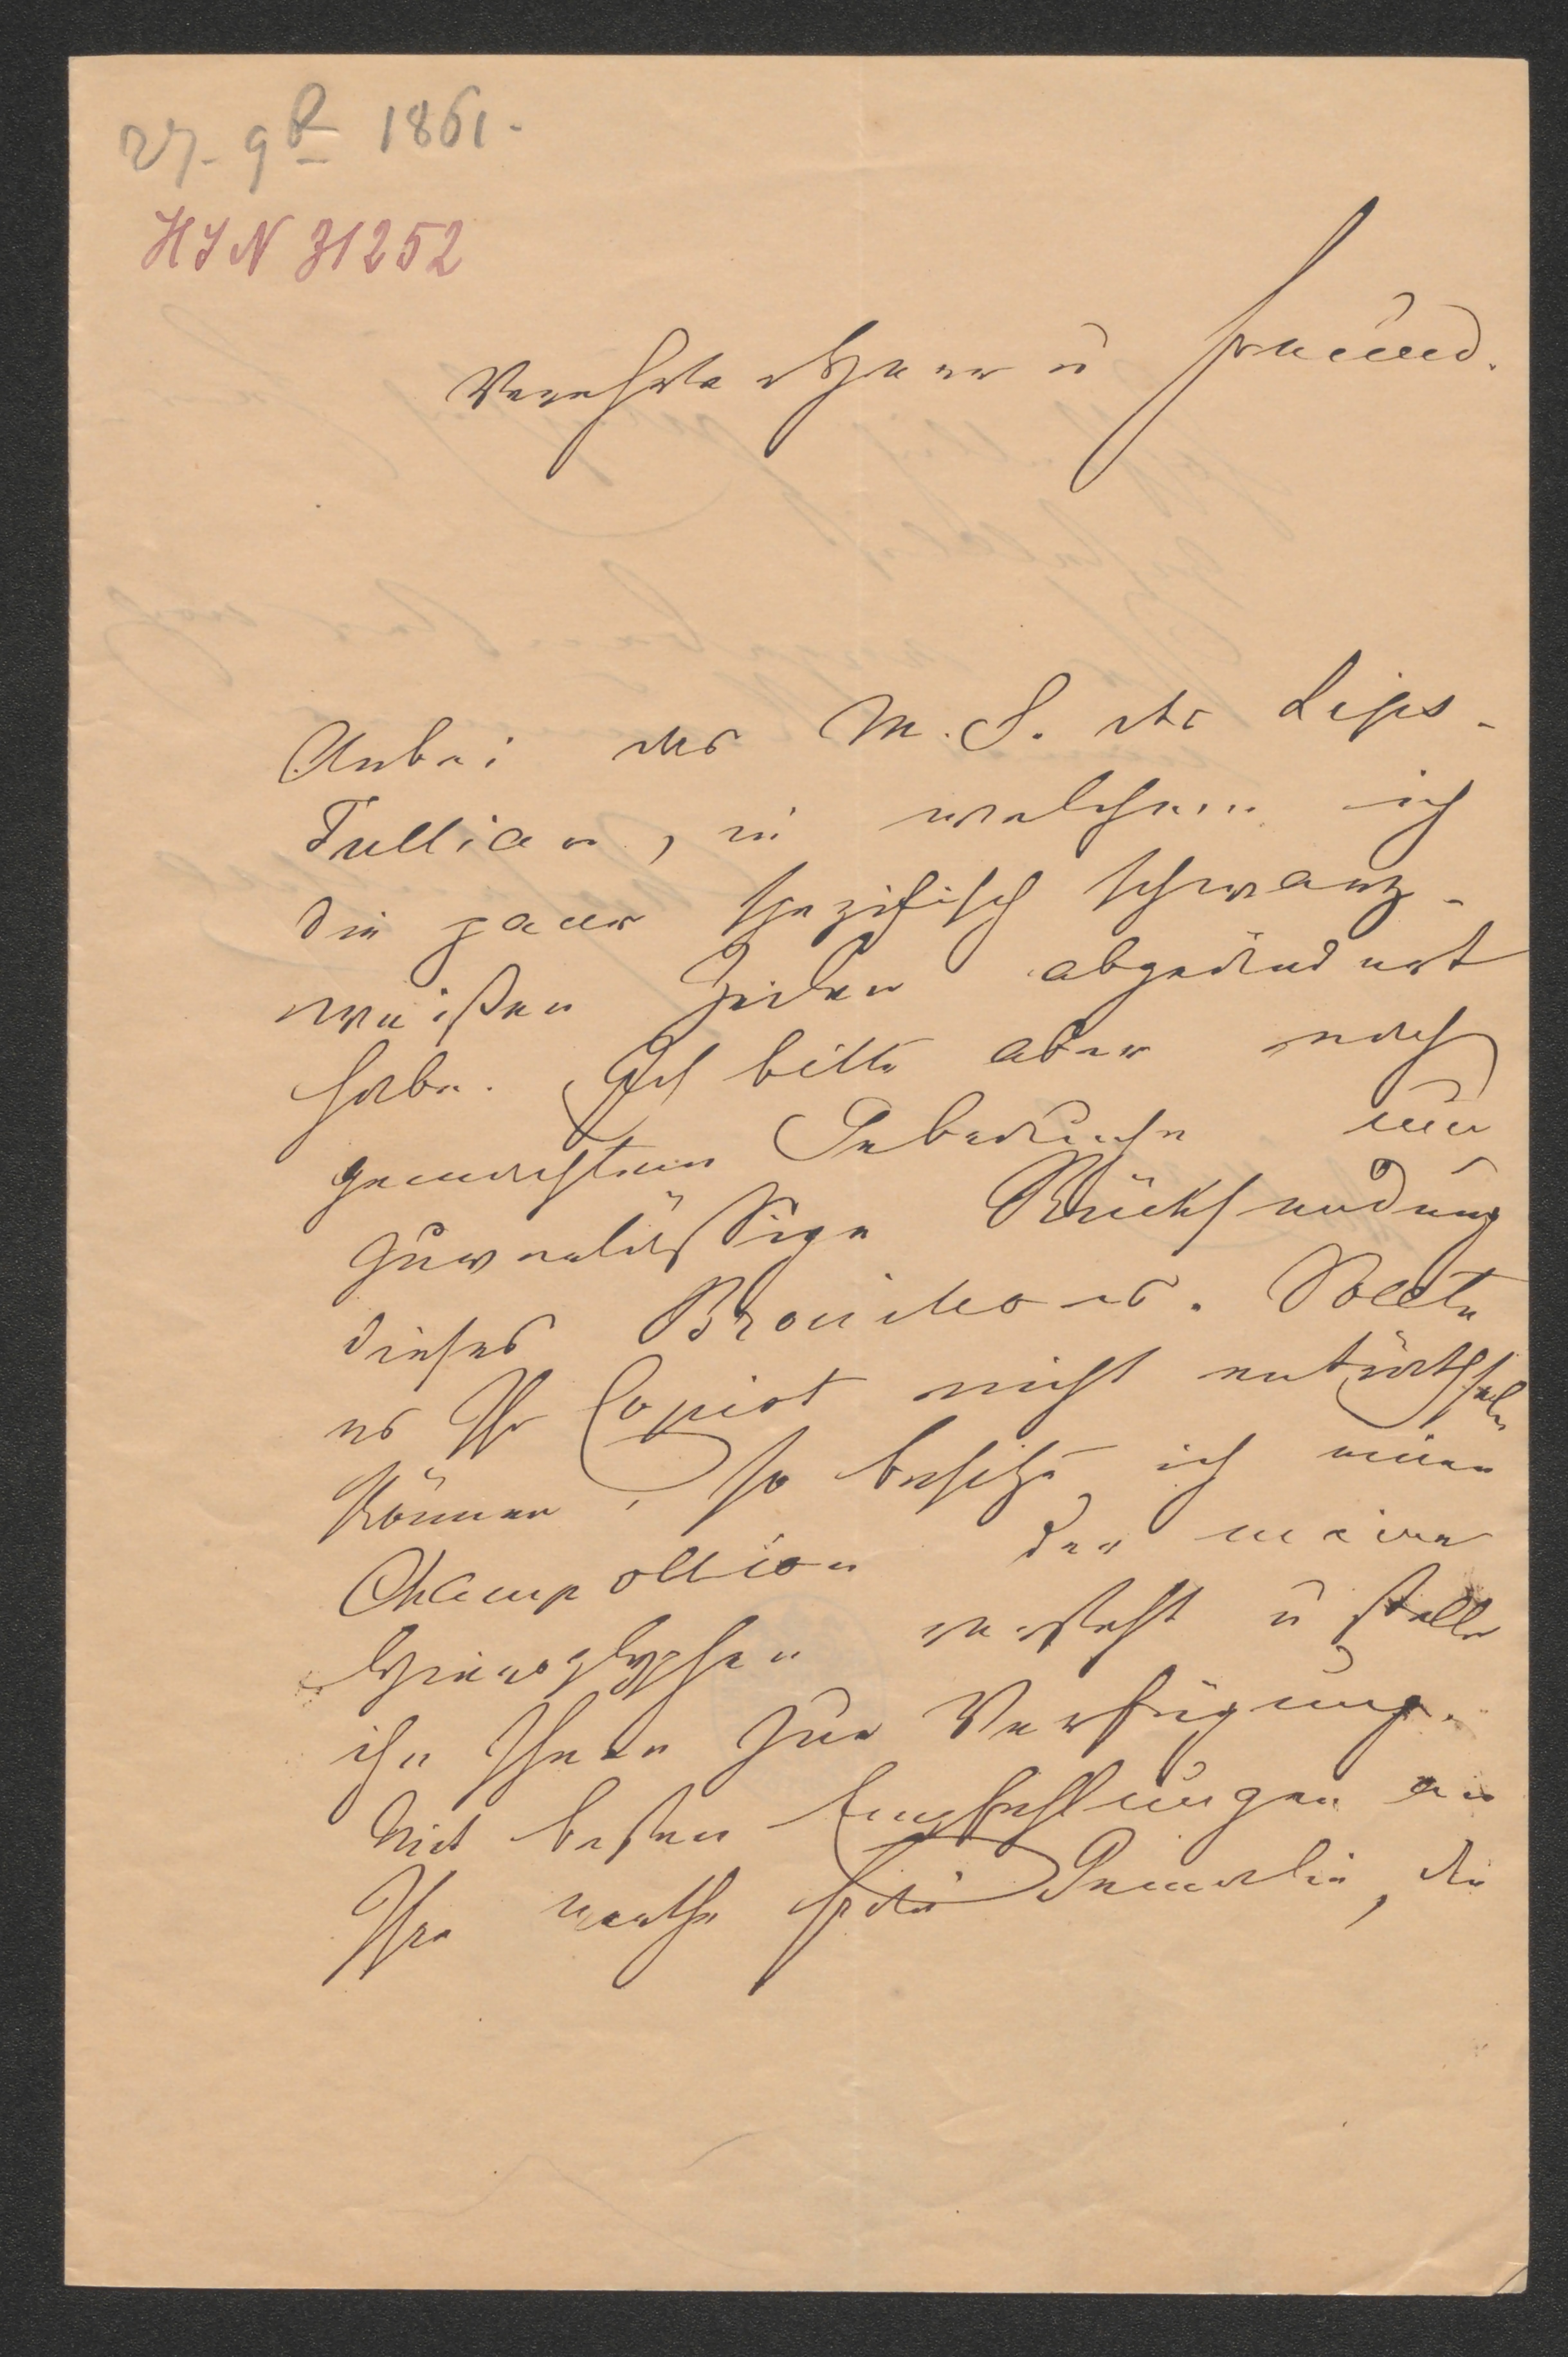 27. 9b 1861.
HIN 31252
Verehrter Herr u Freund.
Anbei das M. S. des Lips-
Tullian, in welchem ich
die paar spezifisch schwarz-
weißen Zeilen abgeändert
habe. Ich bitte aber nach
gemachtem Gebrauche um
zuverlässige Rücksendung
dieses Brouillons. Sollte
es Ihr Copist nicht enträthseln
können, so besitze ich einen
Champollion der meine
Hieroglyphen versteht u stelle
ihn Ihnen zur Verfügung.
Mit besten Empfehlungen an
Ihre werthe Frau Gemalin, die